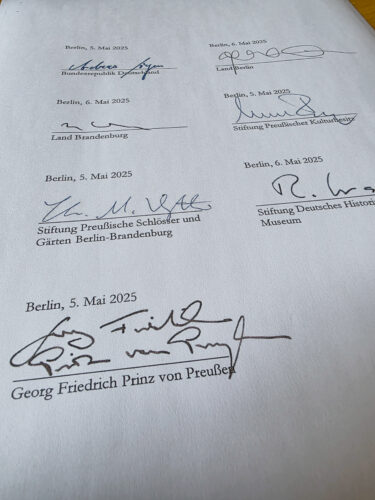 Berlin, 5. Mai 2025
Bundesrepublik Deutschland
Berlin, 6. Mai 2025
Land Berlin
Berlin, 6. Mai 2025
Land Brandenburg
Berlin, 5. Mai 2025
Stiftung Preußischer Kulturbesitz
Berlin, 5. Mai 2025
Stiftung Preußische Schlösser und
Gärten Berlin-Brandenburg
Berlin, 6. Mai 2025
Stiftung Deutsches Histori
Museum
Berlin, 5. Mai 2025
Georg Friedrich Prinz von Preußen